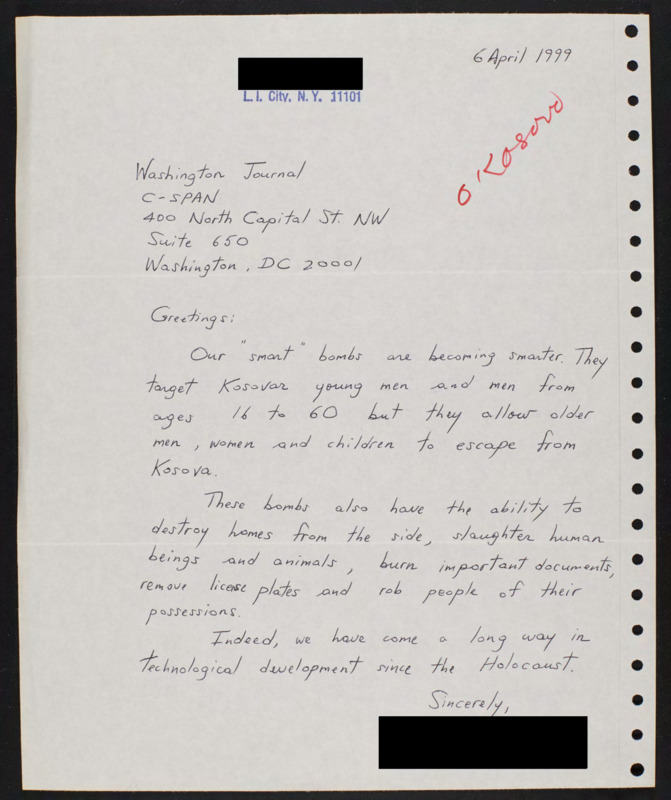 6 April 1999
L.I. City, N.Y. 11101
O'Kosovo
Washington Journal
C-SPAN
400 North Capital St. NW
Suite 650
Washington, DC 20001
Greetings:
Our "smart" bombs are becoming smarter. They
target Kosovar young men and men from
ages 16 to 60 but they allow older
men, women and children to escape from
Kosova.
These bombs also have the ability to
destroy homes from the side, slaughter human
beings and animals, burn important documents,
remove license plates and rob people of their
possessions.
Indeed, we have come a long way in
technological development since the Holocaust.
Sincerely,